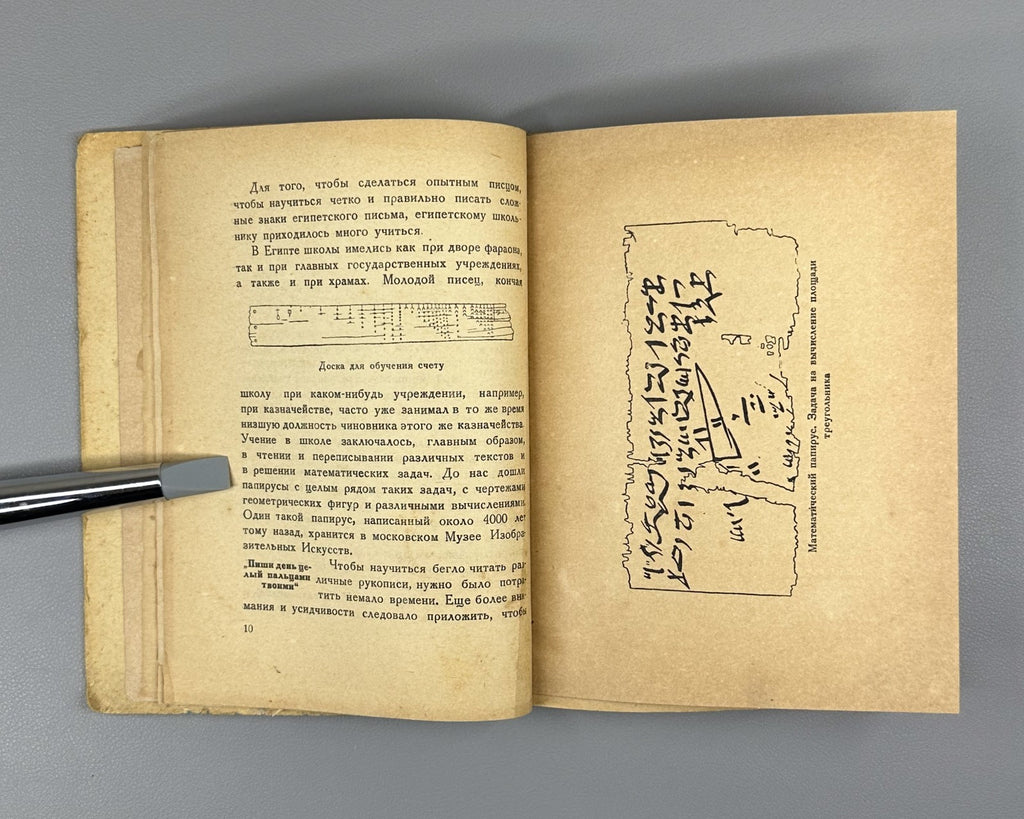 Для того, чтобы сделаться опытным писцом,
чтобы научиться четко и правильно писать слож-
ные знаки египетского письма, египетскому школь-
нику приходилось много учиться.
В Египте школы имелись как при дворе фараона,
так и при главных государственных учреждениях,
а также и при храмах. Молодой писец, кончая
Доска для обучения счету
школу при каком-нибудь учреждении, например,
при казначействе, часто уже занимал в то же время
низшую должность чиновника этого же казначейства.
Учение в школе заключалось, главным образом,
в чтении и переписывании различных текстов и
в решении математических задач. До нас дошли
папирусы с целым рядом таких задач, с чертежами
геометрических фигур и различными вычислениями.
Один такой папирус, написанный около 4000 лет
тому назад, хранится в московском Музее Изобра-
зительных Искусств.
„Пиши день це-
лый пальцами
твоими“
Чтобы научиться бегло читать раз-
личные рукописи, нужно было потра-
тить немало времени. Еще более вни-
мания и усидчивости следовало приложить, чтобы
10
Математический папирус. Задача на вычисление площади
треугольника